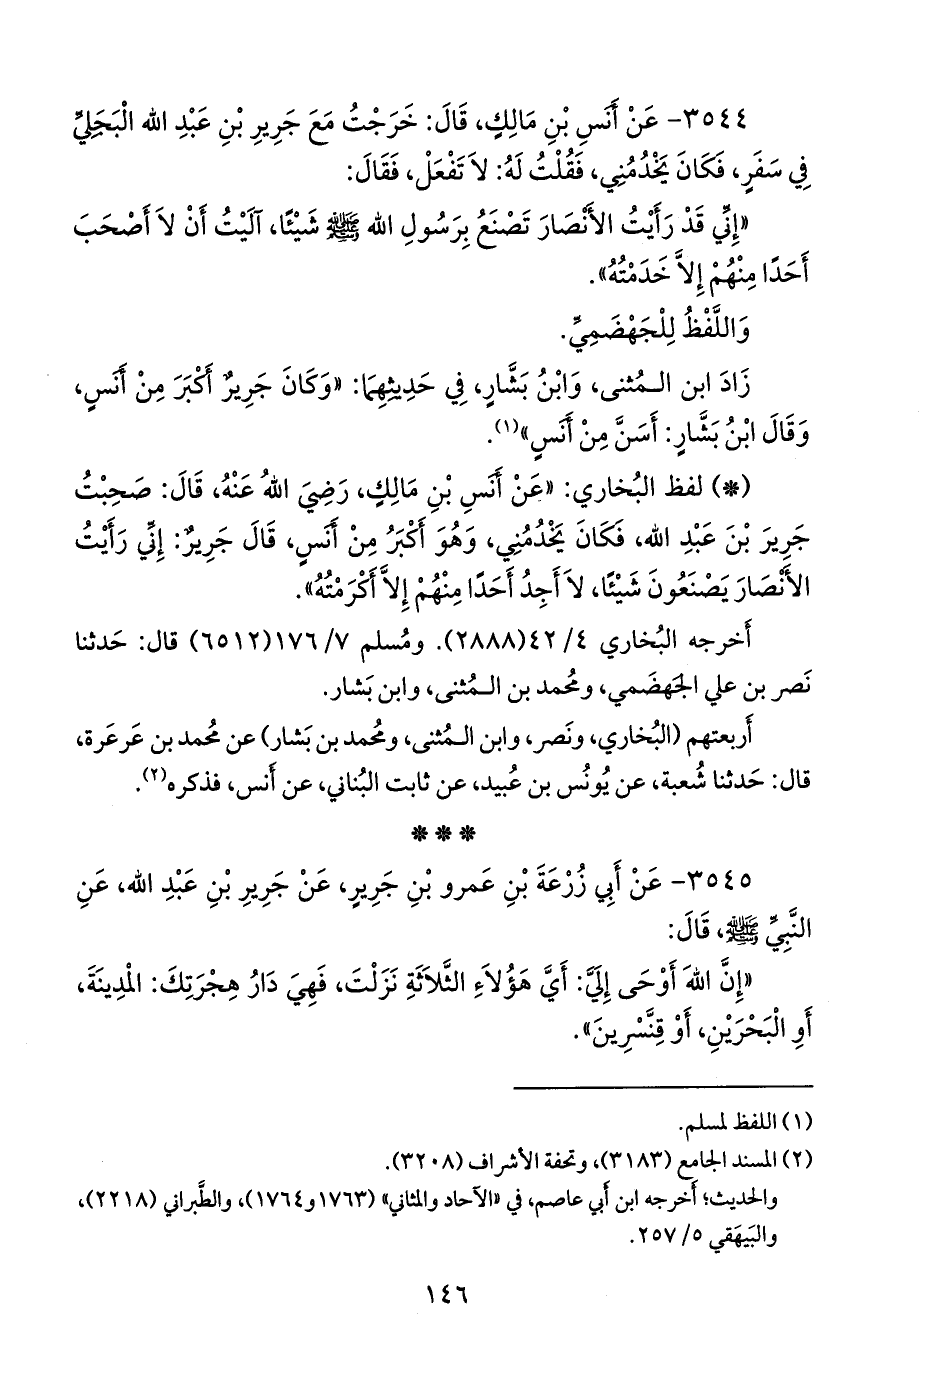 ٣٥٤٤- عَنْ أَنَسِ بْنِ مَالِكٍ، قَالَ: خَرَجْتُ مَعَ جَرِيرِ بْنِ عَبْدِ الله الْبَجَلِيِّ
فِي سَفَرٍ، فَكَانَ يَخْدُمُنِي، فَقُلْتُ لَهُ: لاَ تَفْعَلْ، فَقَالَ:
«إِنِّي قَدْ رَأَيْتُ الأَنْصَارَ تَصْنَعُ بِرَسُولِ الله ﷺ شَيْئًا، آلَيْتُ أَنْ لاَ أَصْحَبَ
أَحَدًا مِنْهُمْ إِلاَّ خَدَمْتُهُ».
وَاللَّفْظُ لِلْجَهْضَمِيِّ.
زَادَ ابن الـمُثنى، وَابْنُ بَشَّارٍ، فِي حَدِيثِهِمَا: «وَكَانَ جَرِيرٌ أَكْبَرَ مِنْ أَنَسٍ،
وَقَالَ ابْنُ بَشَّارٍ: أَسَنَّ مِنْ أَنَسٍ»(١).
(*) لفظ البُخاري: «عَنْ أَنَسِ بْنِ مَالِكٍ، رَضِيَ اللهُ عَنْهُ، قَالَ: صَحِبْتُ
جَرِيرَ بْنَ عَبْدِ الله، فَكَانَ يَخْدُمُنِي، وَهُوَ أَكْبَرُ مِنْ أَنَسٍ، قَالَ جَرِيرٌ: إِنِّي رَأَيْتُ
الأَنْصَارَ يَصْنَعُونَ شَيْئًا، لاَ أَجِدُ أَحَدًا مِنْهُمْ إِلاَّ أَكْرَمْتُهُ».
أَخرجه البُخاري ٤/ ٤٢(٢٨٨٨). ومُسلم ٧/ ١٧٦(٦٥١٢) قال: حَدثنا
نَصر بن علي الجَهضَمي، ومُحمد بن الـمُثنى، وابن بَشار.
أَربعتهم (البُخاري، ونَصر، وابن الـمُثنى، ومُحمد بن بَشار) عن مُحمد بن عَرعَرة،
قال: حَدثنا شُعبة، عن يُونُس بن عُبيد، عن ثابت البُناني، عن أَنس، فذكره(٢).
* * *
٣٥٤٥- عَنْ أَبِي زُرْعَةَ بْنِ عَمرو بْنِ جَرِيرٍ، عَنْ جَرِيرِ بْنِ عَبْدِ الله، عَنِ
النَّبِيِّ ﷺ، قَالَ:
«إِنَّ اللهَ أَوْحَى إِلَيَّ: أَيَّ هَؤُلاَءِ الثَّلاَثَةِ نَزَلْتَ، فَهِيَ دَارُ هِجْرَتِكَ: الْمَدِينَةَ،
أَوِ الْبَحْرَيْنِ، أَوْ قِنَّسْرِينَ».
(١) اللفظ لمسلم.
(٢) المسند الجامع (٣١٨٣)، وتحفة الأشراف (٣٢٠٨).
والحديث؛ أَخرجه ابن أَبي عاصم، في «الآحاد والمثاني» (١٧٦٣و١٧٦٤)، والطَّبراني (٢٢١٨)،
والبَيهَقي ٥/ ٢٥٧.
١٤٦